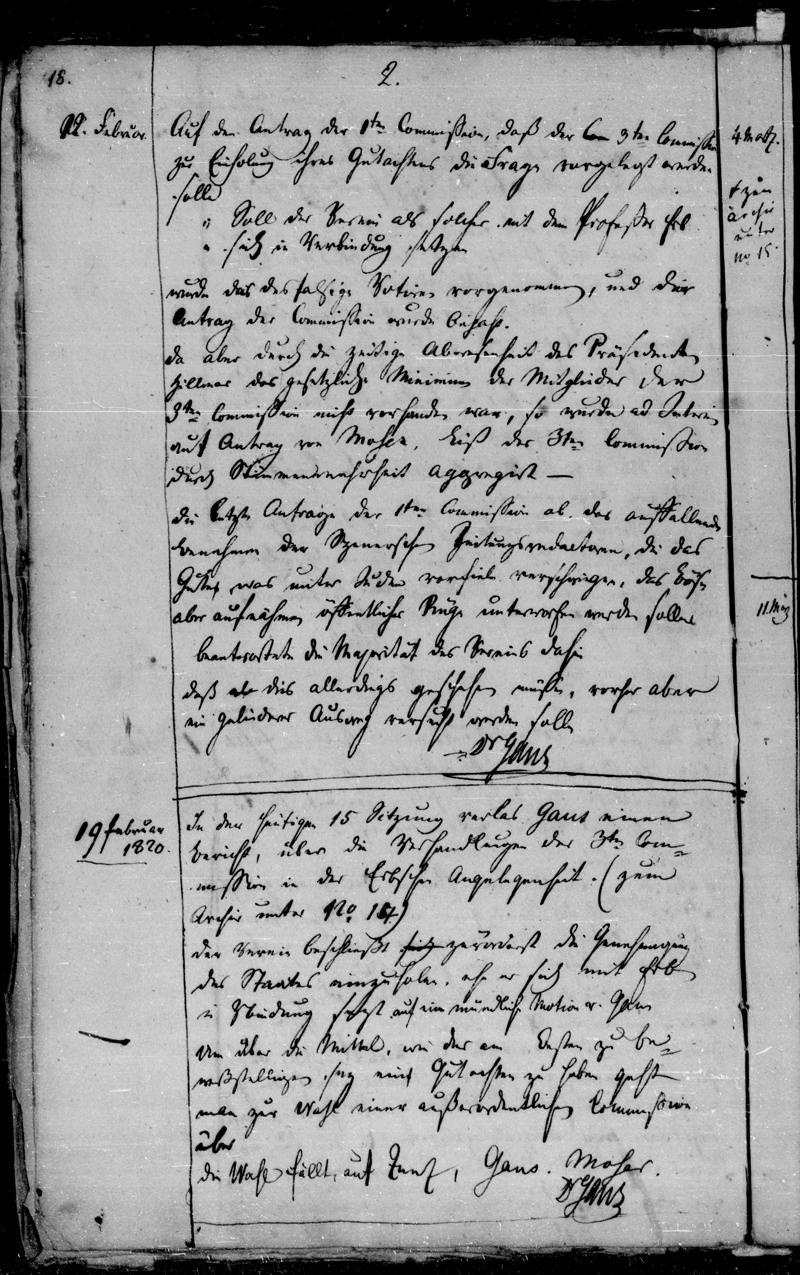 18.
2.
12. Februar.
Auf den Antrag der 1ten Commission, daß der 3ten Commission
zur Einholung ihres Gutachtens die Frage vorgelegt werden
solle
" Soll der Verein als solcher mit dem Professor Erb
" sich in Verbindung setzen
wurde das desfalsige Votiren vorgenommen, und der
Antrag der Commission wurde bejaht.
Da aber durch die zeitige Abwesenheit des Präsidenten
Hillmar das gesetzliche Minimum der Mitglieder der
3ten Commission nicht vorhanden war, so wurde ad Interim
auf Antrag von Moser, List der 3ten Commission
durch Stimmenmehrheit aggregirt —
Die letzte Anfrage der 1ten Commission ob das auffallende
Benehmen der Spenerschen Zeitungsredactoren, die das
Gute, was unter Juden vorfiele verschwiegen, das Böse
aber aufnähmen öffentlicher Rüge unterworfen werden solle
beantwortete die Majorität des Vereins dahin
daß dies allerdings geschehen müsse, vorher aber
ein gelinderer Ausweg versucht werden solle
Dr Gans
19 Februar
1820.
In der heutigen 15 Sitzung verlas Gans einen
Bericht, über die Verhandlungen der 3ten Com-
mission in der Erbschen Angelegenheit. (zum
Archiv unter No 15)
Der Verein beschließt zuvörderst die Genehmigung
des Staates einzuholen, ehe er sich mit Erb
in Vbindung setzt auf eine mündliche Motion v. Gans
Um über die Mittel, wie dies am besten zu be-
werkstelligen sey ein Gutachten zu haben geht
man zur Wahl einer außerordentlichen Commission
über
die Wahl fällt auf Zunz, Gans. Moser.
Dr Gans
zum
Archiv
unter
no 15.
11. März